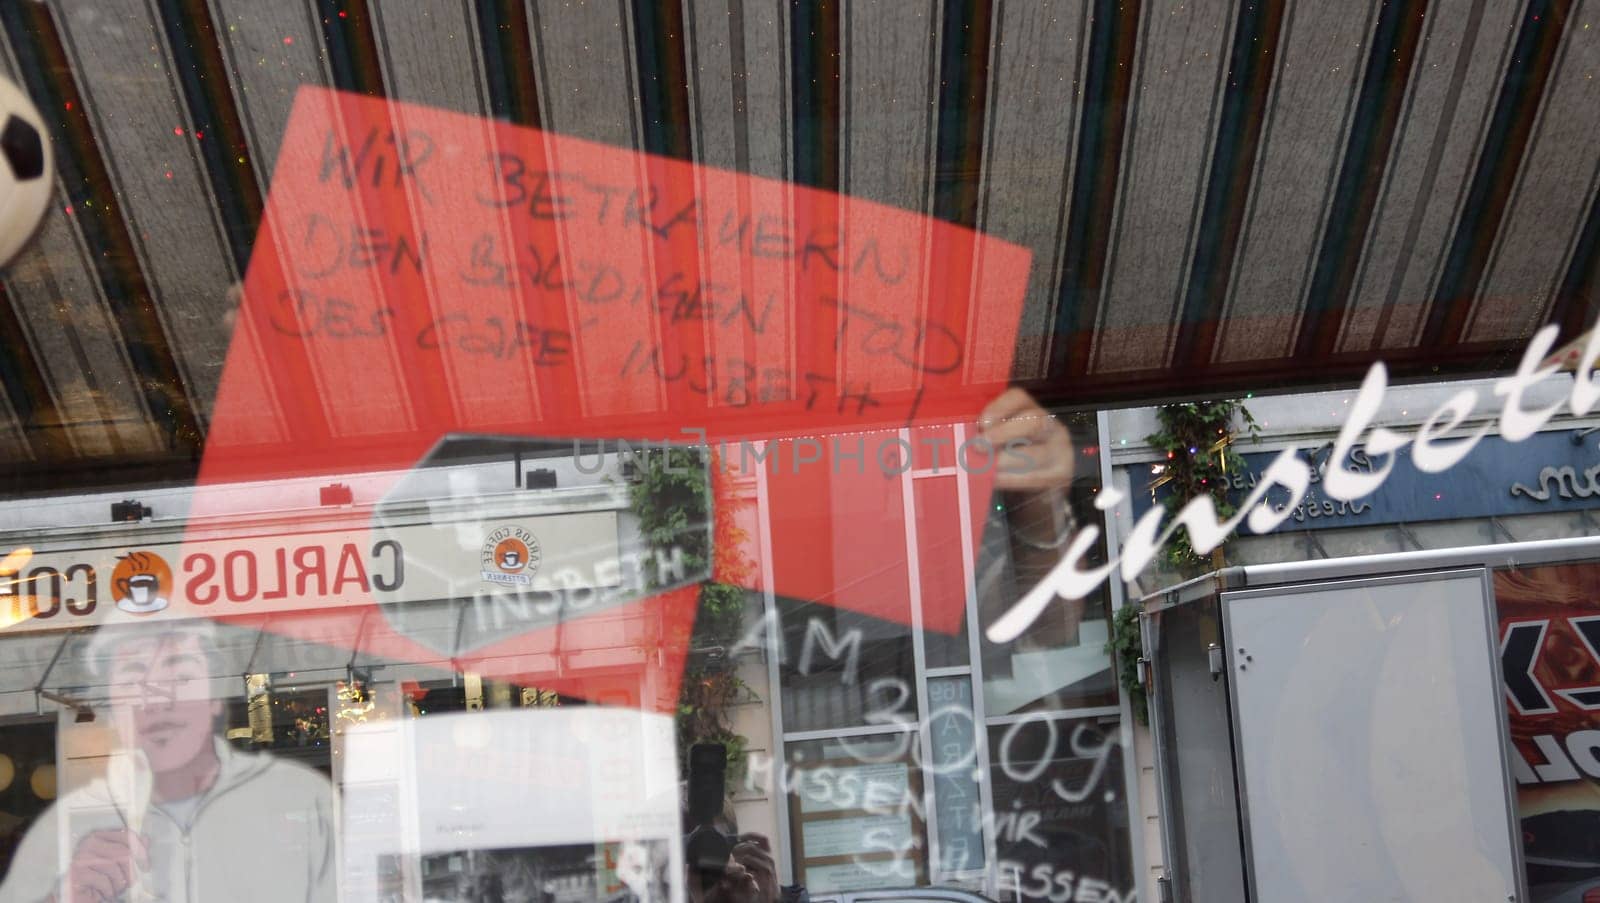 WIR BETRAUERN
DEN BALDIGEN TOD
DES CAFÉ INSBETH!
insbeth
CARLOS CO
CARLOS COFFEE
OTTENSEN
INSBETH
AM
30.09.
MÜSSEN WIR
SCHLIESSEN
169
ARZT
UNLIMPHOTOS